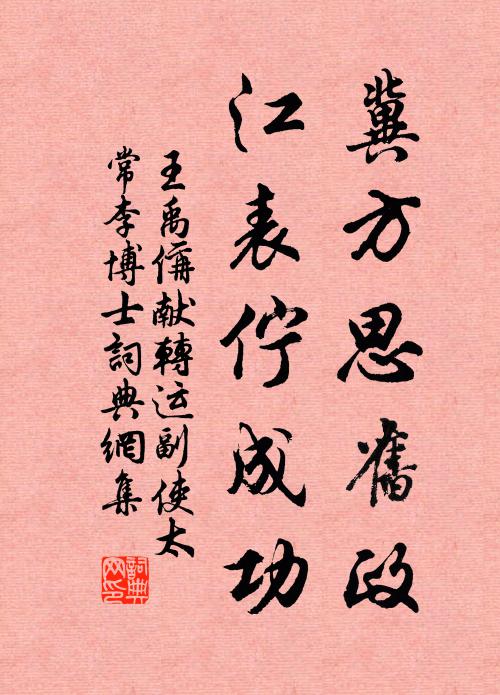 冀方思舊政
江表佇成功
王禹偁献轉运副使太
常李博士詞典網集
詞典
网印